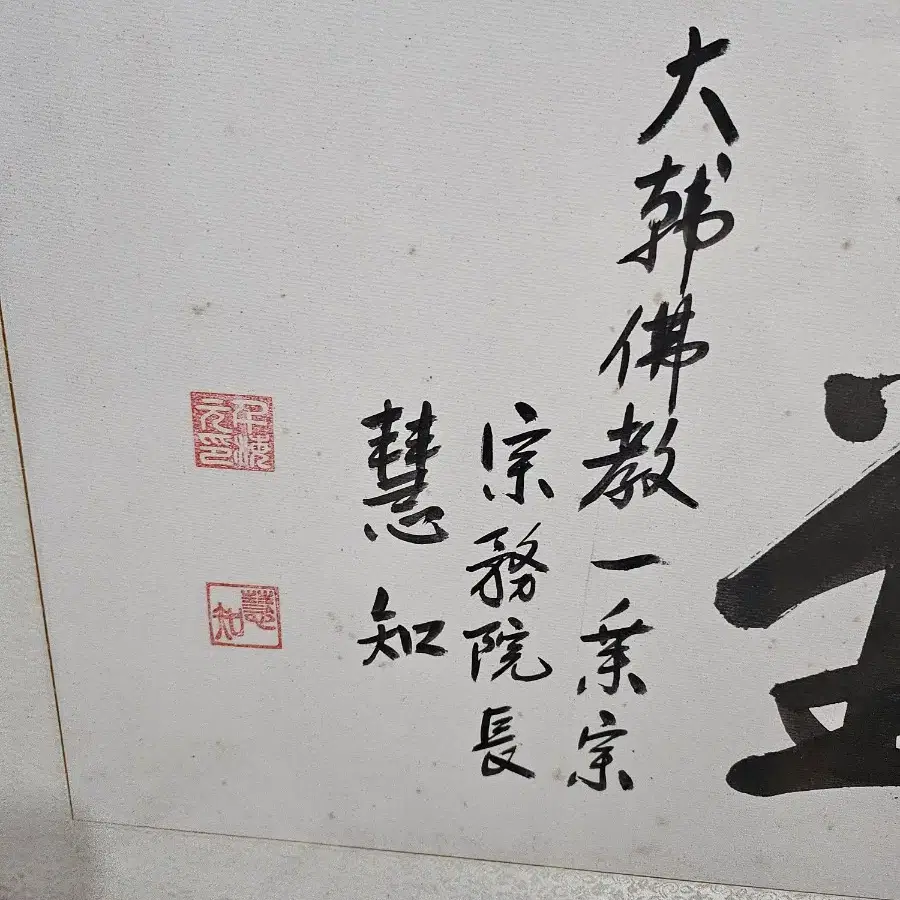 大韓佛教一乗宗
宗務院長
慧知
慧知